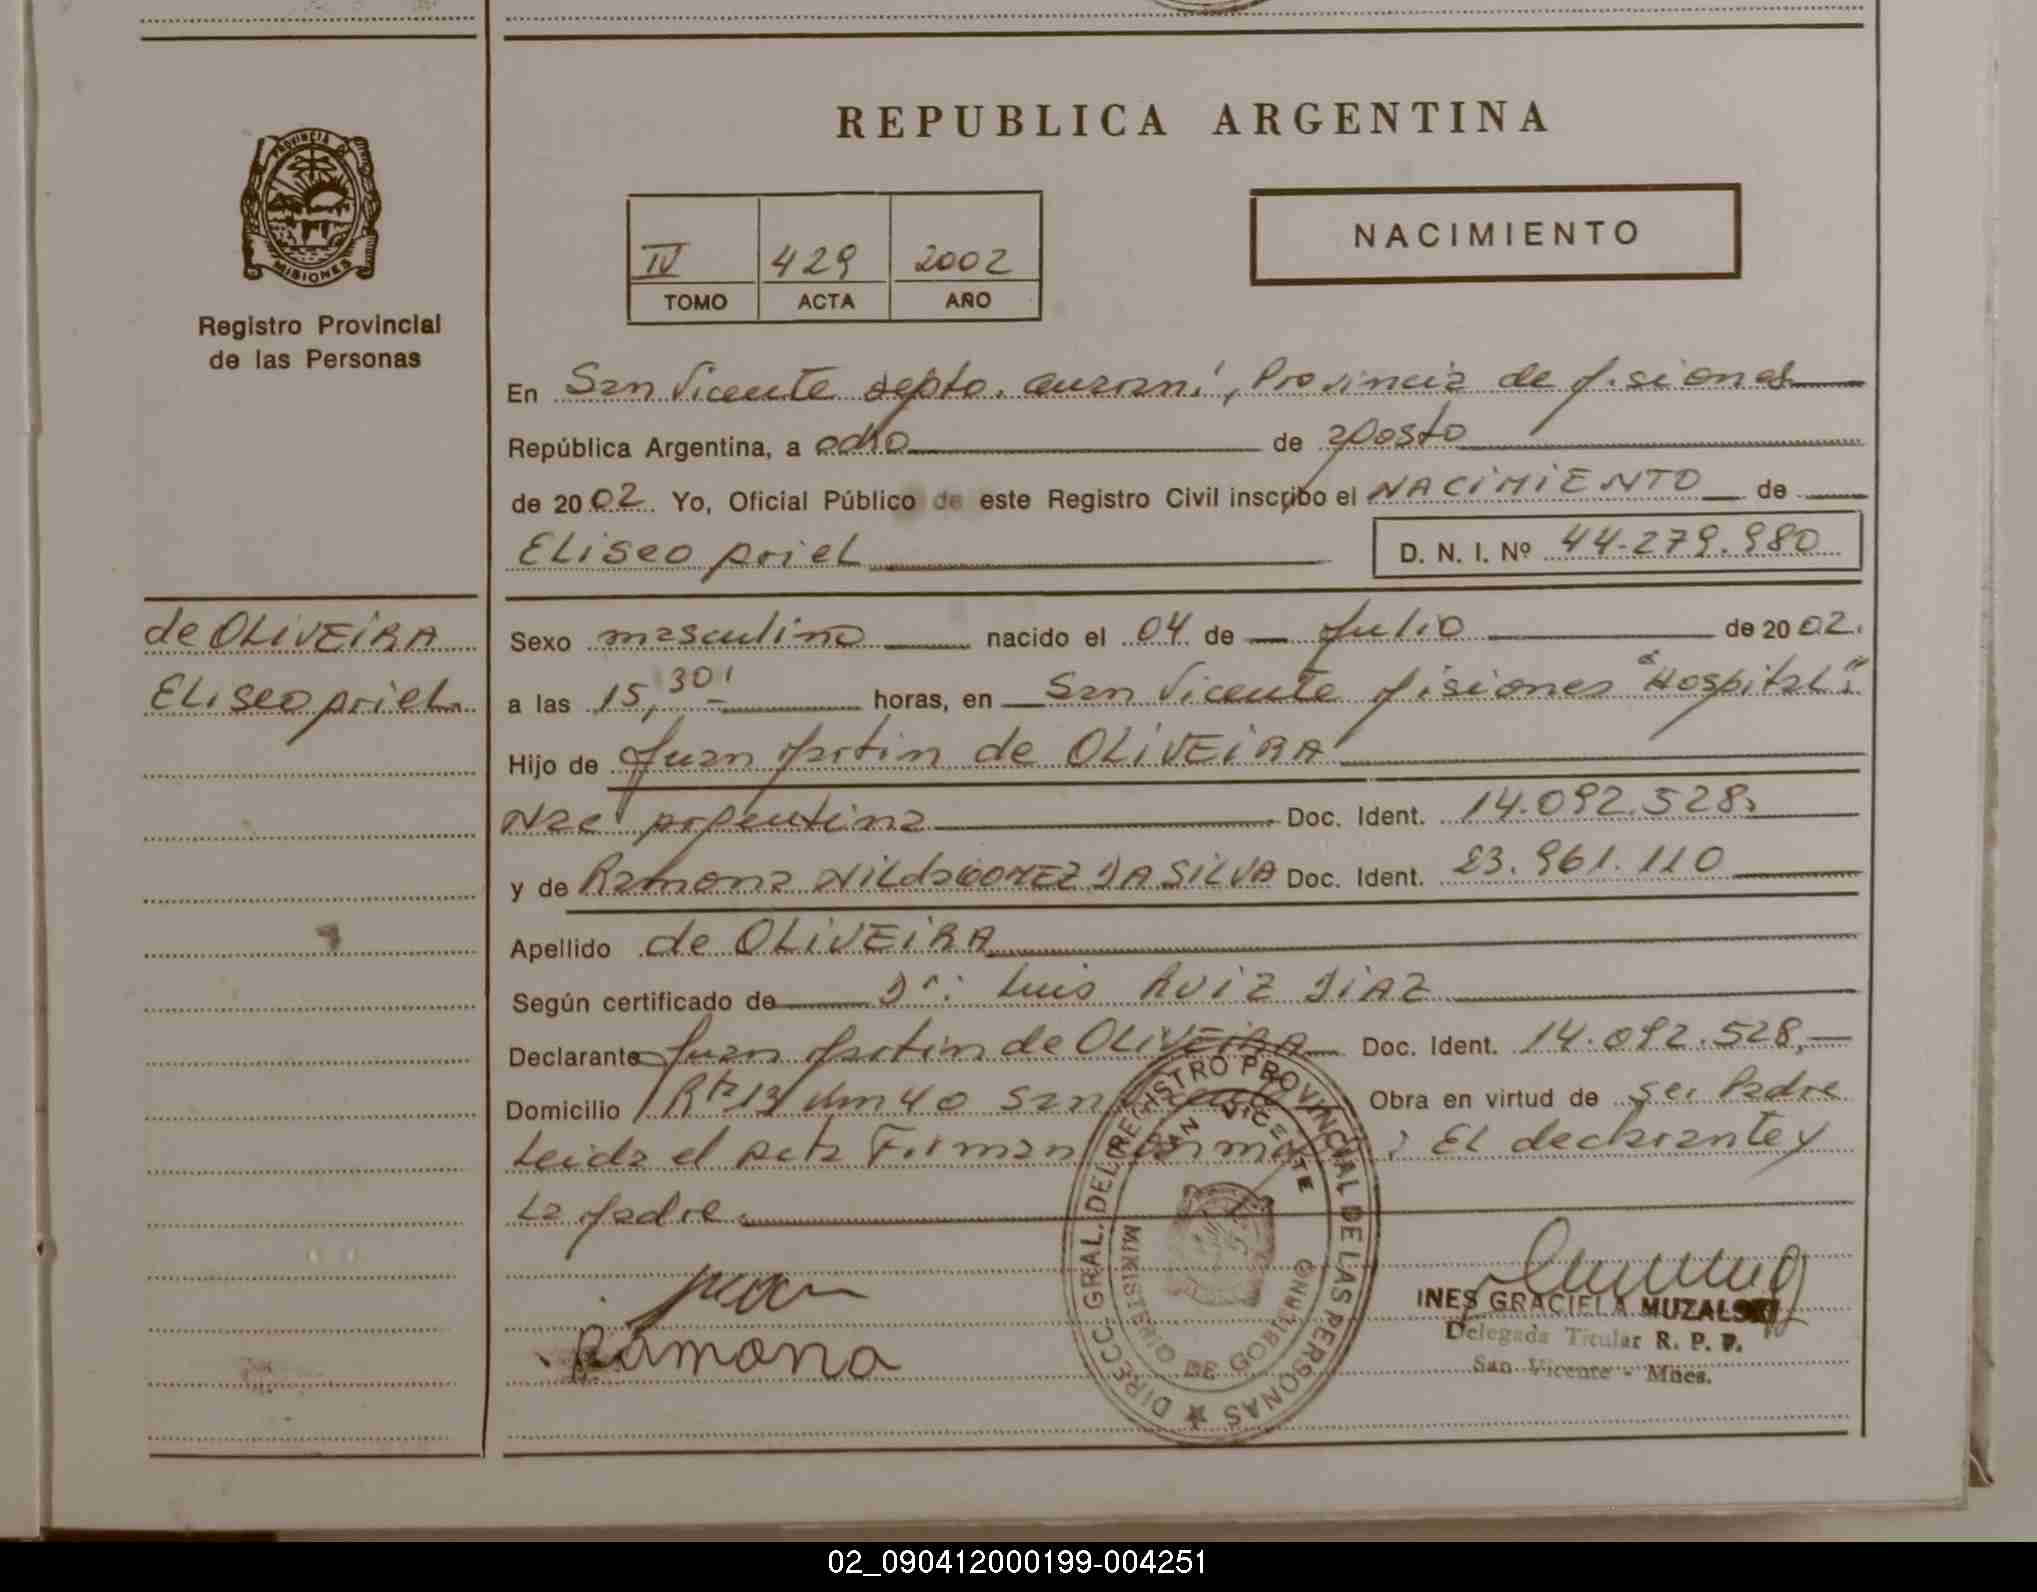 REPUBLICA ARGENTINA
PROVINCIA DE
MISIONES
Registro Provincial
de las Personas
IV 429 2002
TOMO ACTA AÑO
NACIMIENTO
En San Vicente depto. Guarani, Provincia de Misiones
República Argentina, a ocho de agosto
de 2002. Yo, Oficial Público de este Registro Civil inscribo el NACIMIENTO de
Eliseo Ariel D. N. I. Nº 44-279.980
de OLIVEIRA
Eliseo Ariel.
Sexo masculino nacido el 04 de Julio de 2002.
a las 15,30' horas, en San Vicente Misiones "Hospital".
Hijo de Juan Martin de OLIVEIRA
Nac. Argentina Doc. Ident. 14.092.528,
y de Ramona Nilda GOMEZ DA SILVA Doc. Ident. 23.961.110
Apellido de OLIVEIRA
Según certificado de Dr: Luis RUIZ DIAZ
Declarante Juan Martin de OLIVEIRA Doc. Ident. 14.092.528,—
Domicilio Rta 13 Km 40 San Obra en virtud de ser Padre
Leida el Acta Firman : El declarante y
La Madre.
Juan
Ramona
DIRECC. GRAL. DEL REGISTRO PROVINCIAL DE LAS PERSONAS
SAN VICENTE
MINISTERIO DE GOBIERNO
INES GRACIELA MUZALSKI
Delegada Titular R. P. P.
San Vicente - Mnes.
02_090412000199-004251